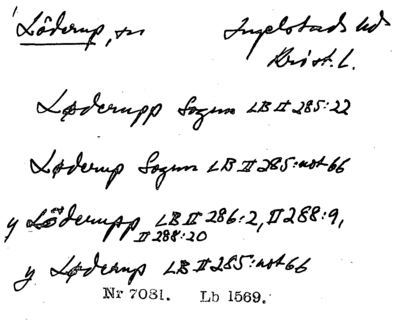 Löderup, sn Ingelstads hd
Krist. L.
Løderupp Sogun LB II 285:22
Løderup Sogun LB II 285:not 66
y Löderupp LB II 286:2, II 288:9,
II 288:20
y Løderup LB II 285:not 66
Nr 7081. Lb 1569.